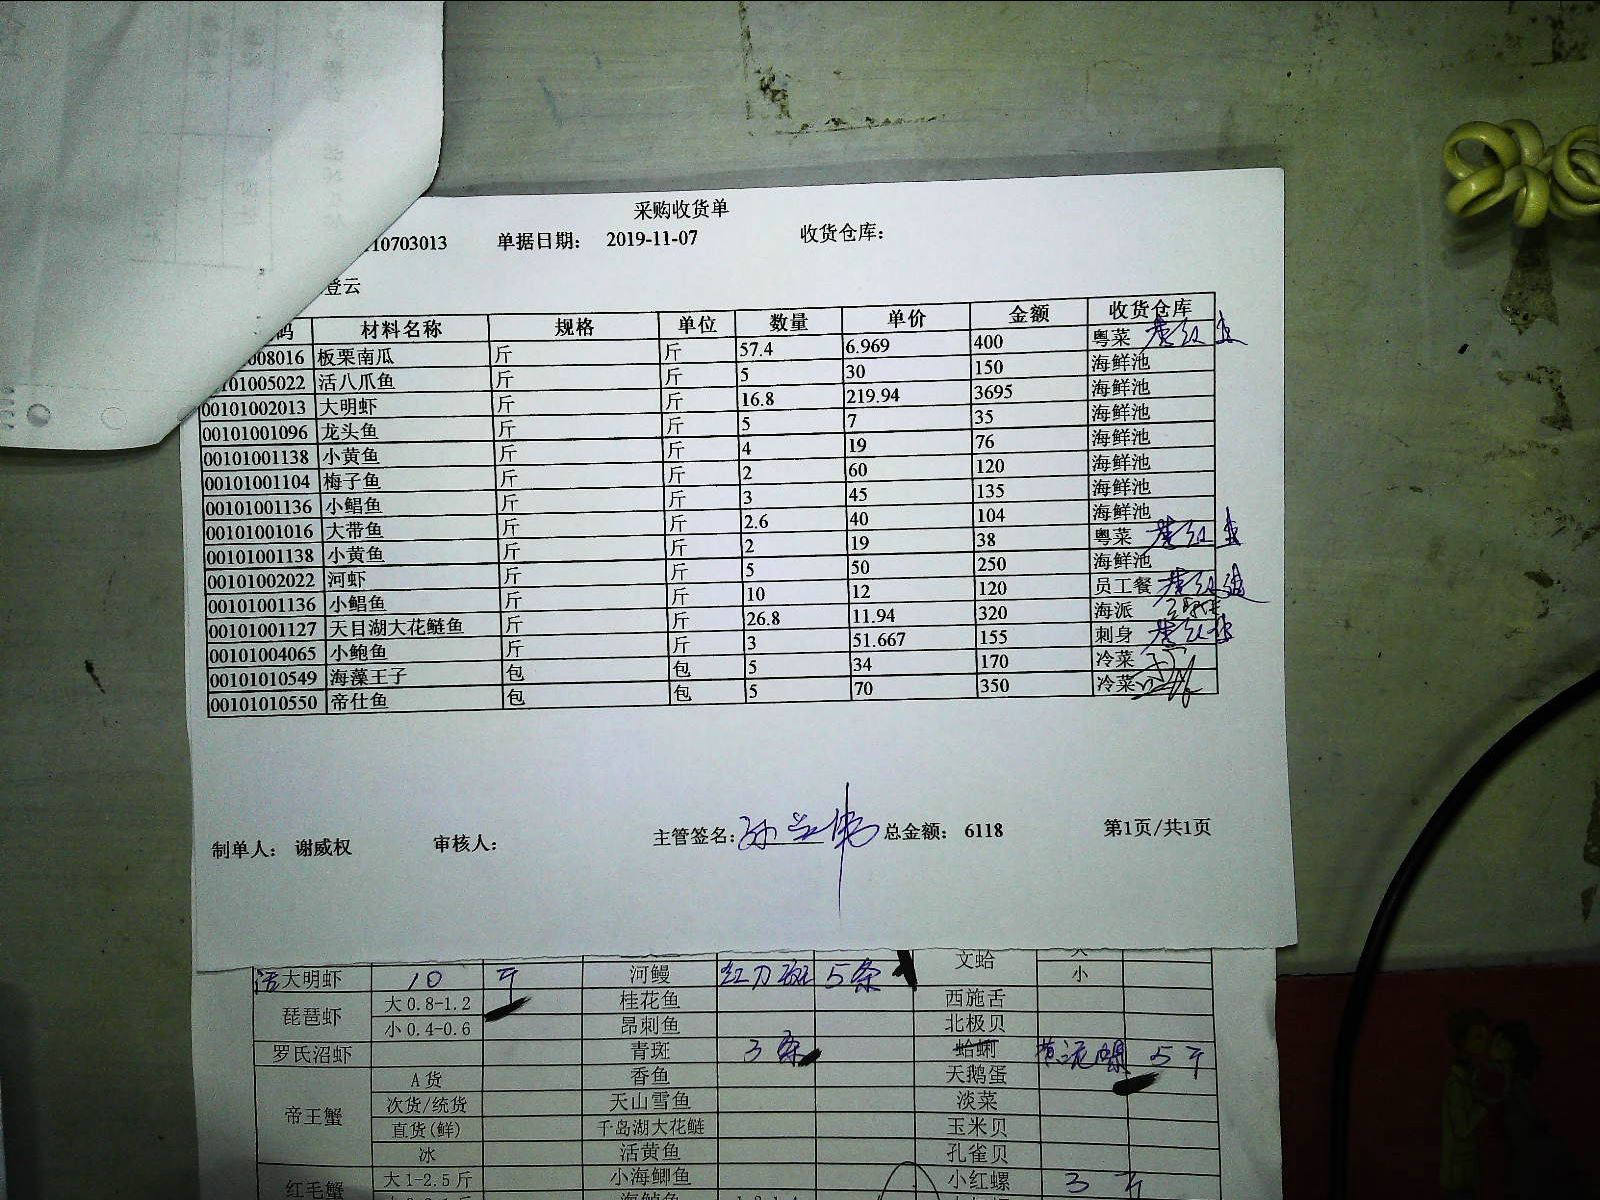 采购收货单
10703013 单据日期： 2019-11-07 收货仓库：
登云
码 材料名称 规格 单位 数量 单价 金额 收货仓库
008016 板栗南瓜 斤 斤 57.4 6.969 400 粤菜
101005022 活八爪鱼 斤 斤 5 30 150 海鲜池
00101002013 大明虾 斤 斤 16.8 219.94 3695 海鲜池
00101001096 龙头鱼 斤 斤 5 7 35 海鲜池
00101001138 小黄鱼 斤 斤 4 19 76 海鲜池
00101001104 梅子鱼 斤 斤 2 60 120 海鲜池
00101001136 小鲳鱼 斤 斤 3 45 135 海鲜池
00101001016 大带鱼 斤 斤 2.6 40 104 海鲜池
00101001138 小黄鱼 斤 斤 2 19 38 粤菜
00101002022 河虾 斤 斤 5 50 250 海鲜池
00101001136 小鲳鱼 斤 斤 10 12 120 员工餐
00101001127 天目湖大花鲢鱼 斤 斤 26.8 11.94 320 海派
00101004065 小鲍鱼 斤 斤 3 51.667 155 刺身
00101010549 海藻王子 包 包 5 34 170 冷菜
00101010550 帝仕鱼 包 包 5 70 350 冷菜
制单人： 谢威权 审核人： 主管签名： 总金额： 6118 第1页/共1页
活大明虾 10 斤 河鳗 红刀斑 5条 文蛤 小
琵琶虾 大0.8-1.2 桂花鱼 西施舌
小0.4-0.6 昂刺鱼 北极贝
罗氏沼虾 青斑 3条 蛤蜊 黄泥螺 5斤
帝王蟹 A货 香鱼 天鹅蛋
次货/统货 天山雪鱼 淡菜
直货(鲜) 千岛湖大花鲢 玉米贝
冰 活黄鱼 孔雀贝
红毛蟹 大1-2.5斤 小海鲫鱼 小红螺 3斤